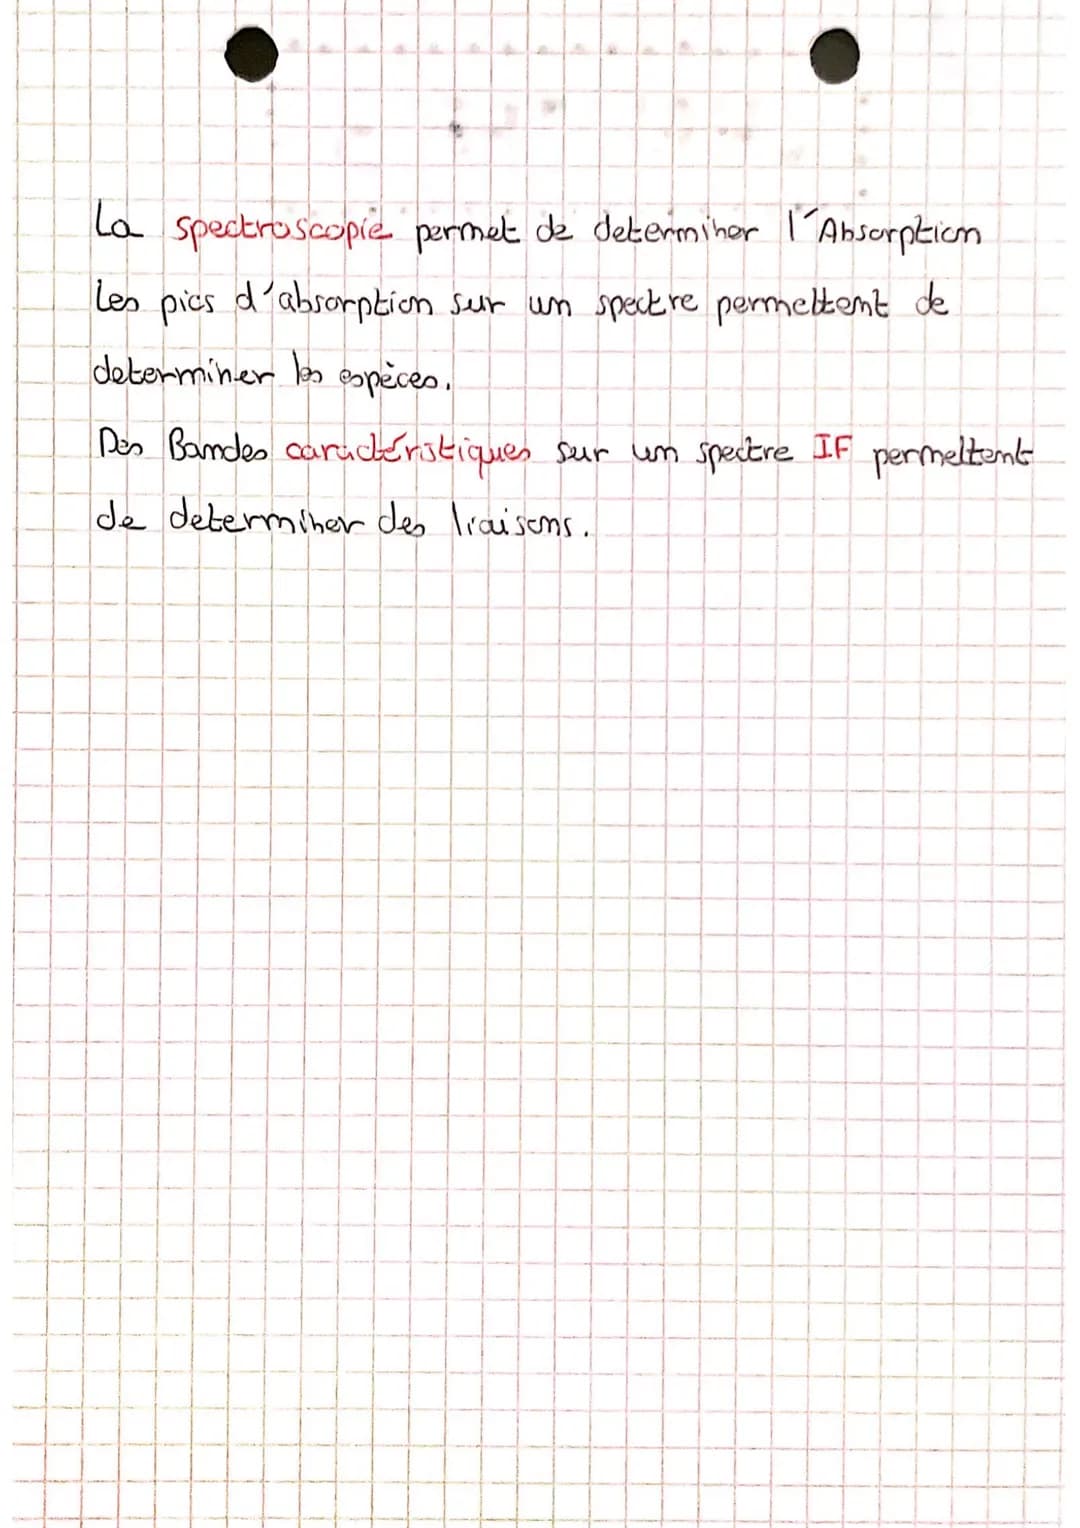 La spectroscopie permet de determiner l'Absorption
Les pics d'absorption sur un spectre permettent de
determiner les espèces.
Des Bandes caractéristiques sur un spectre IF permettent
de determiner des liaisons.